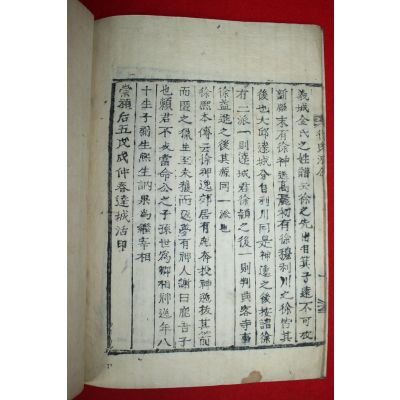 義城金氏之姓譜云徐之先出自箕子遠不可攷
新羅末有徐神逸高麗初有徐穆利川之徐皆其
後也大邱達城分自利川同是神逸之後按諸徐
有二派一則達城君徐韻之後一則判典客寺事
徐益進之後其源同一派也
徐熙本傳云徐神逸郊居有鹿奔投神逸拔其箭
而匿之獵生至未獲而返夢有神人謝曰鹿吾子
也賴君不死當令公之子孫世為卿相神逸年八
十生子弼生熙生訥果為繼宰相
崇禎后五戊戌仲春達城活印